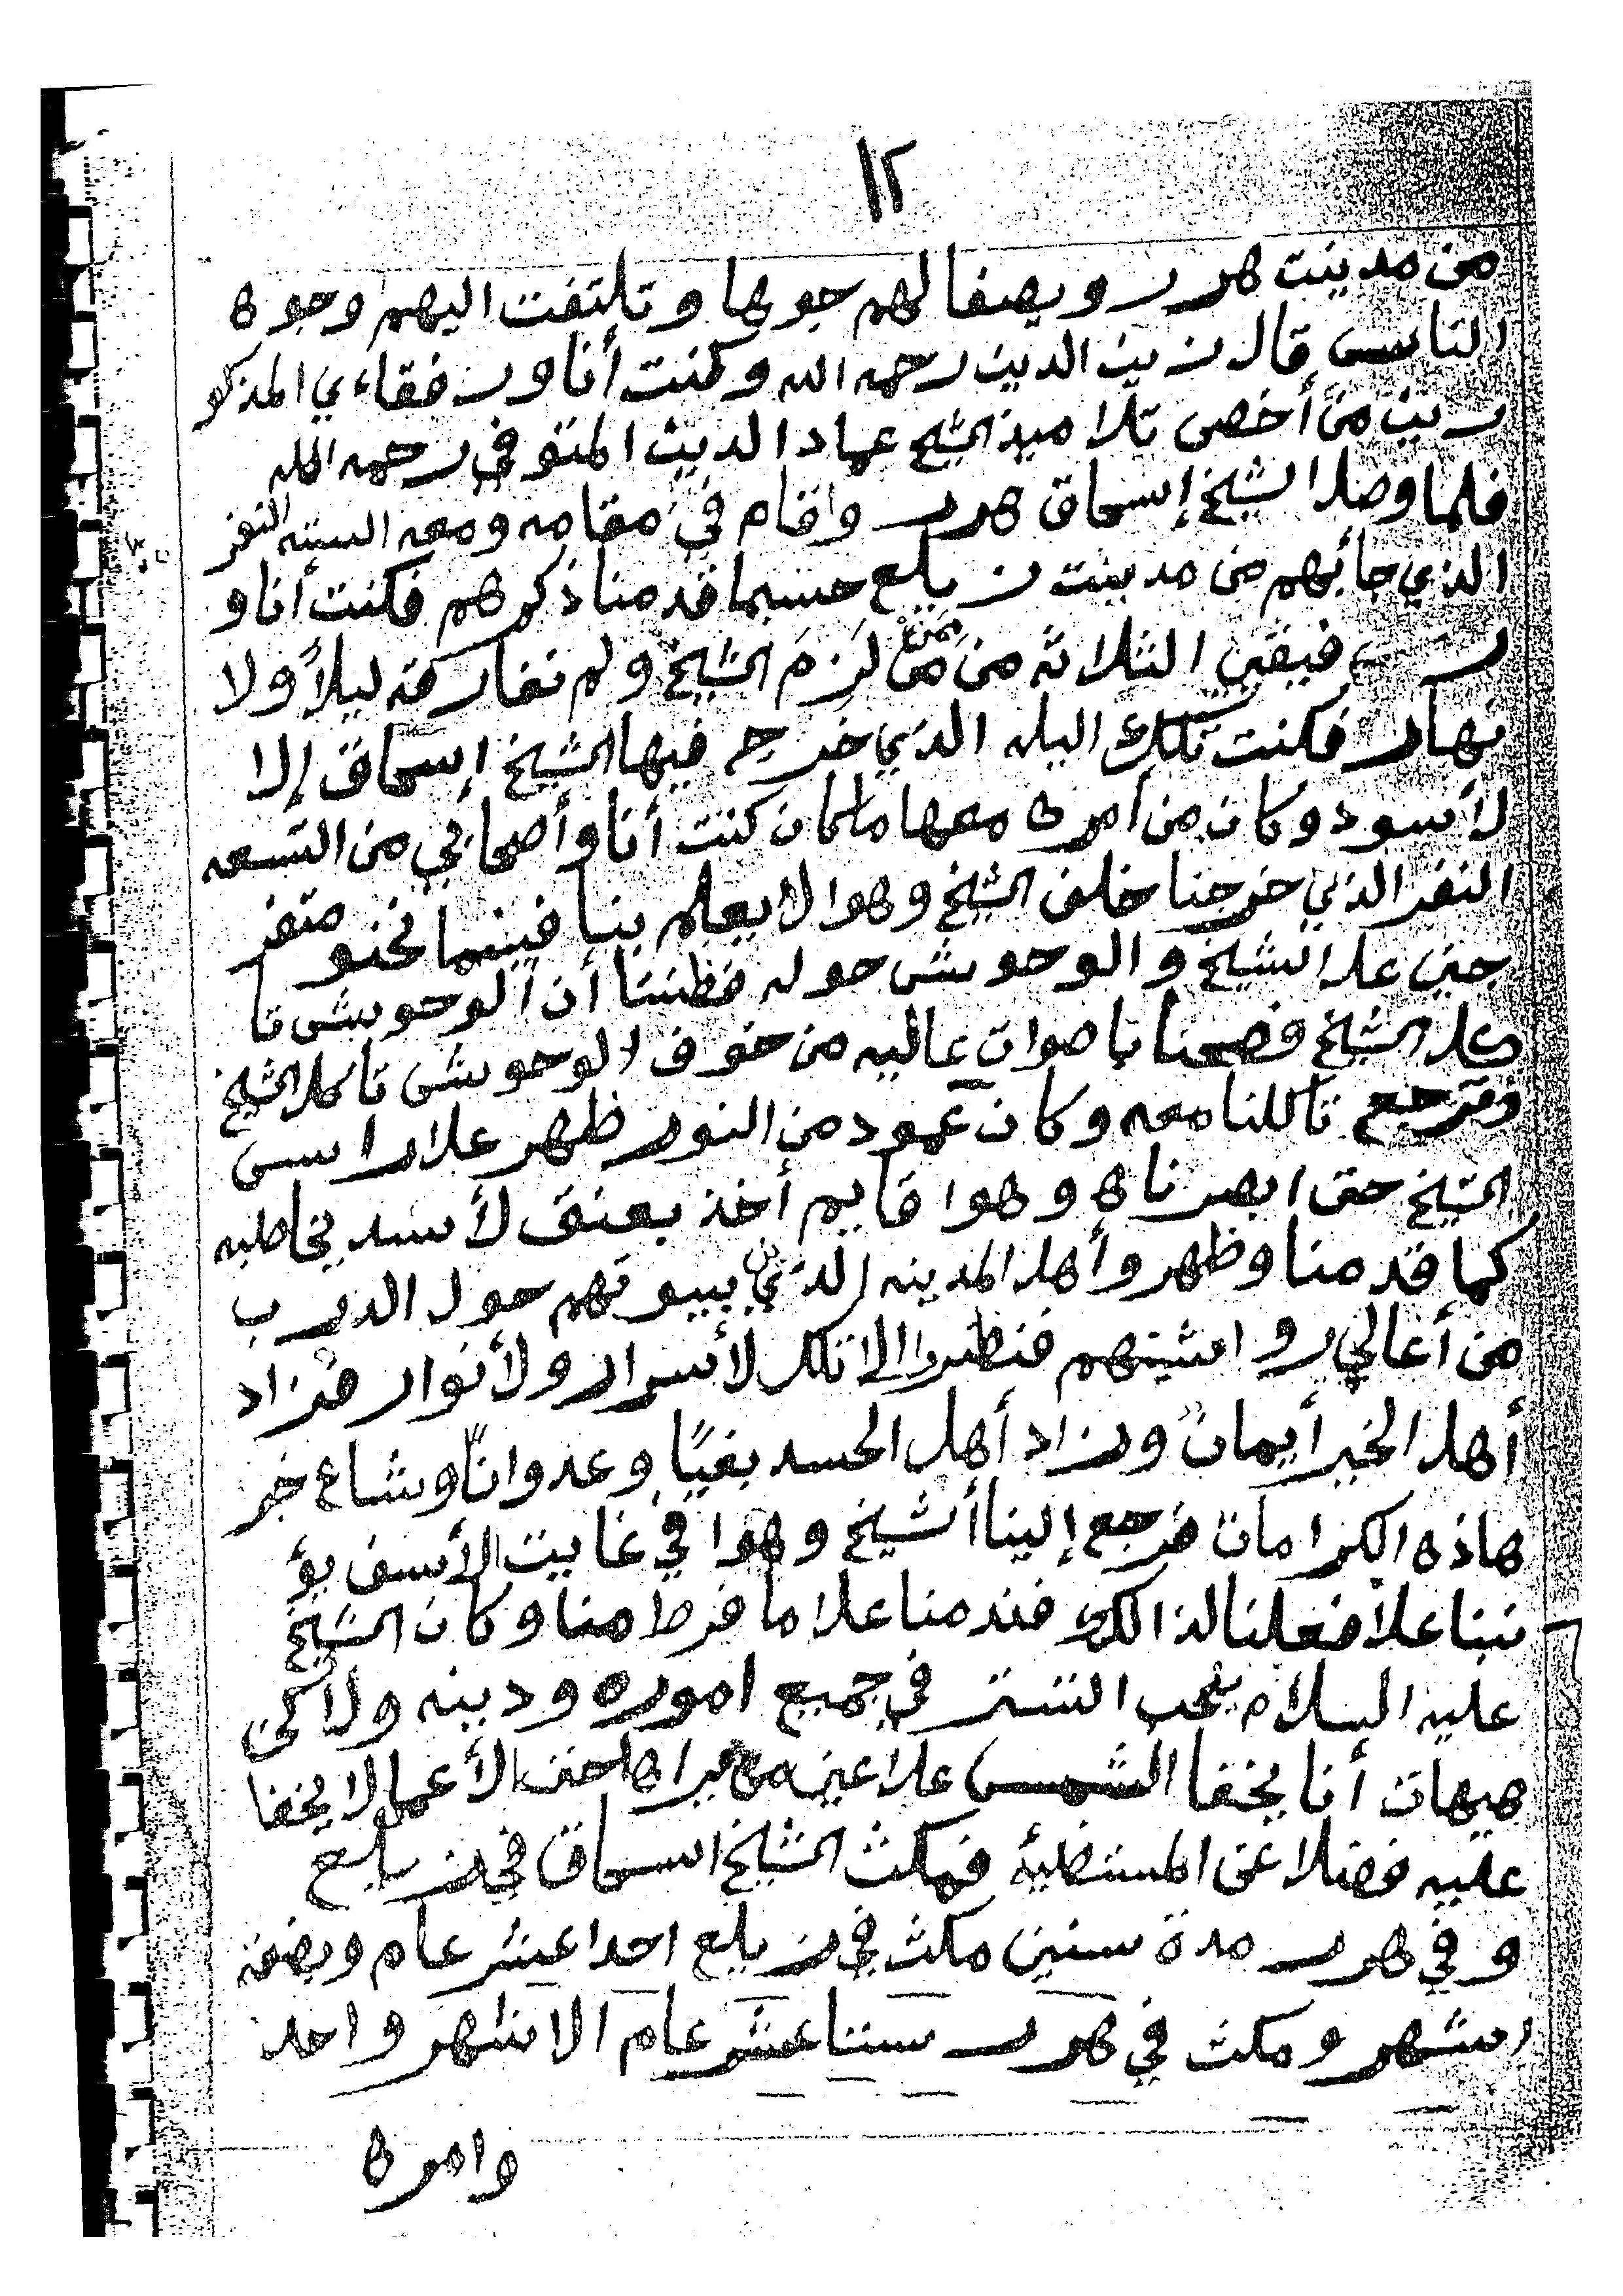 ١٢
من مدينت هرر ويصفا لهم جوها وتلتفت اليهم وجوه
الناس قال زين الدين رحمه الله وكنت أنا ورفقاءي المذكو
رين من أخص تلاميذ الشيخ عماد الدين المتوفي رحمه الله
فلما وصل الشيخ إسحاق هرر واقام في مقامه ومعه الستة النفر
الذي جائبهم من مدينت زيلع حسبما قدمنا ذكرهم فكنت أنا و
رفيقي الثلاثة من من لَزِمَ الشيخ ولم نفارقه ليلاً ولا
نهار فكنت تلك اليله الذي خرج فيها الشيخ إسحاق إلا
لأسود وكان من أمره معها ما كان كنت أنا وأصحابي من التسعه
النفر الذي خرجنا خلف الشيخ وهوا لا يعلم بنا فبينما نحنو متفر
جين علا الشيخ والوحوش حوله فظننا أن الوحوش تا
كل الشيخ فصحنا باصوات عاليه من خوف الوحوش تاكل الشيخ
وترجع تاكلنا معه وكان عمود من النور ظهر علا راس
الشيخ حتى ابصرناه وهوا قايم أخذ بعنق لأسد يخاطبه
كما قدمنا وظهر وأهل المدينه الذي بيوتهم حول الدرب
من أعالي رواشينهم فنظروا الا تلك لأسرار ولأنوار فزاد
أهل الخير أيمانً وزاد أهل الحسد بغيًا وعدوانًا وشاع خبر
هاذه الكرامات فرجع إلينا ألشيخ وهوا في غايت الأسف يؤ
نبنا علا فعلنا لذالك فندمنا علا ما فرط منا وكان الشيخ
عليه السلام يحب التستر في جميع اموره ودينه ولاكن
هيهات أنا يخفا الشمس علا عين من يراها حتى الأعما لا يخفا
عليه فضلا عن المستضيئ فمكث الشيخ اسحاق في زيلع
وفي هرر مدة سنين مكث في زيلع احدا عشر عام وبضعة
اشهر ومكث في هرر ستا عشر عام الا شهر واحد
وامره